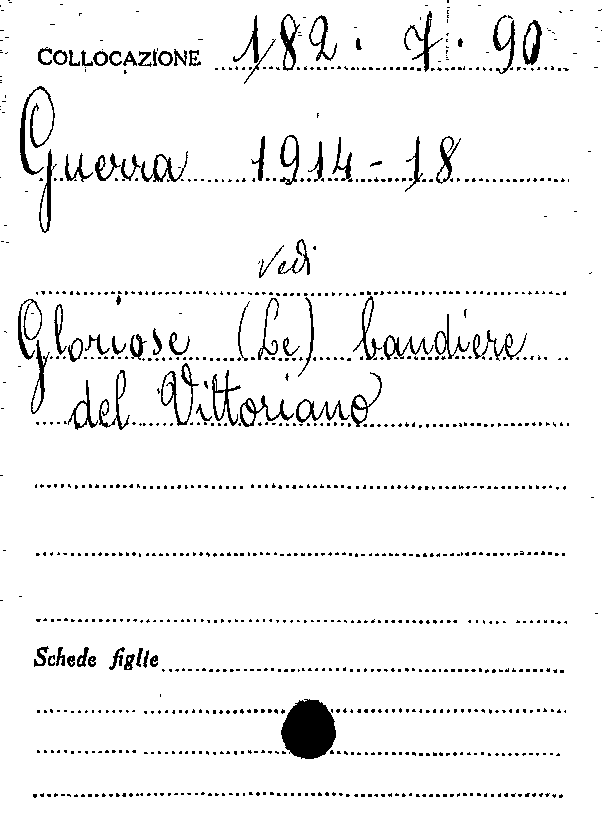 COLLOCAZIONE 182. 7. 90
Guerra 1914-18
Vedi
Gloriose (Le) bandiere
del Vittoriano
Schede figlie